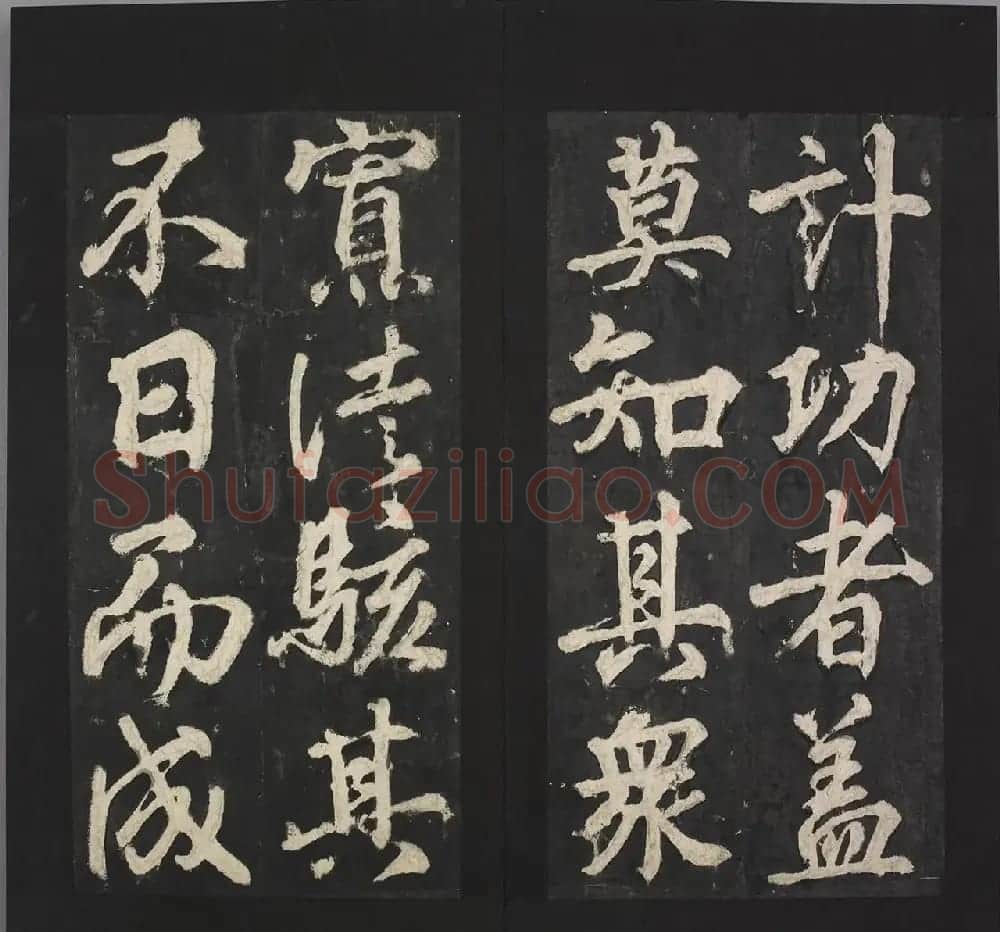 計功者盖
莫知其衆
實徒駭其
不日而成
Shufaziliao.COM